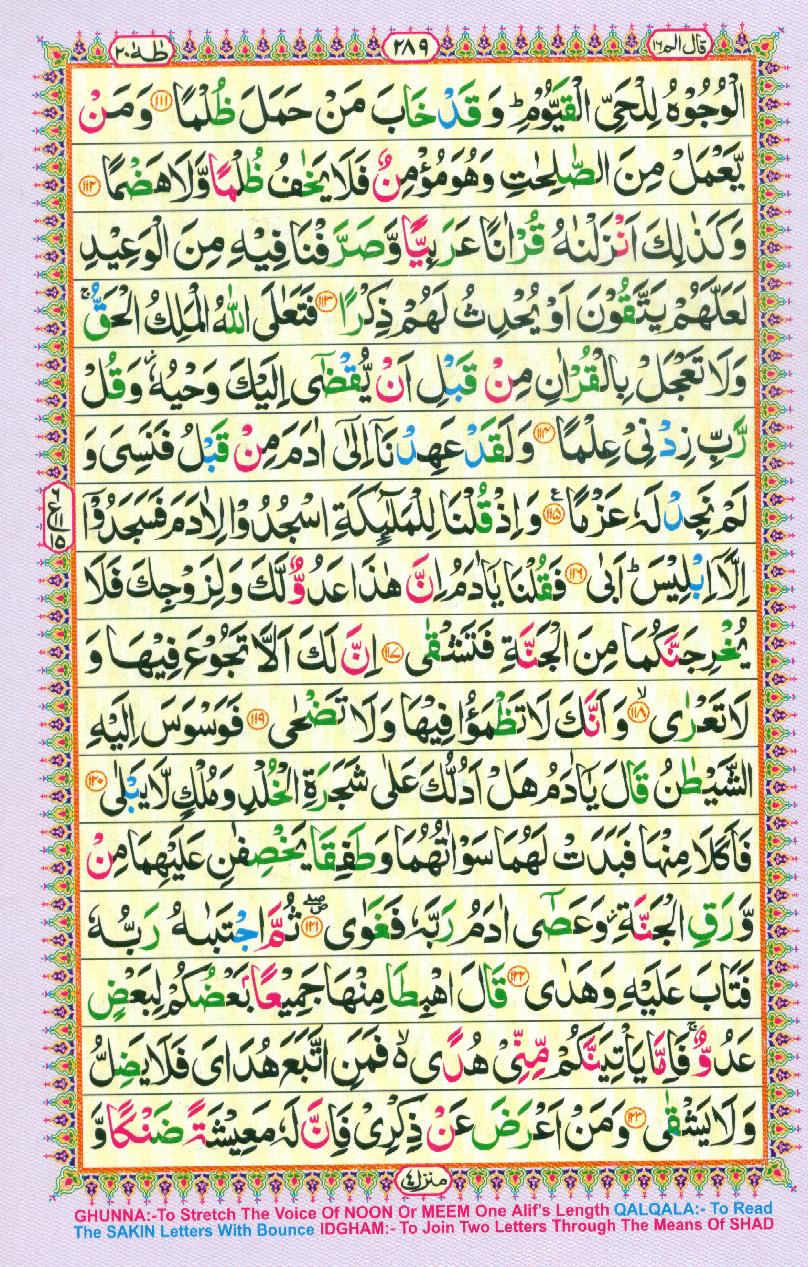 طٰهٰ ٢٠
٢٨٩
قال الم ١٦
الْوُجُوْهُ لِلْحَیِّ الْقَیُّوْمِ ؕ وَ قَدْ خَابَ مَنْ حَمَلَ ظُلْمًا ﴿۱۱۱﴾ وَ مَنْ
یَّعْمَلْ مِنَ الصّٰلِحٰتِ وَهُوَ مُؤْمِنٌ فَلَا یَخٰفُ ظُلْمًا وَّلَا هَضْمًا ﴿۱۱۲﴾
وَكَذٰلِكَ اَنْزَلْنٰهُ قُرْاٰنًا عَرَبِیًّا وَّصَرَّفْنَا فِیْهِ مِنَ الْوَعِیْدِ
لَعَلَّهُمْ یَتَّقُوْنَ اَوْ یُحْدِثُ لَهُمْ ذِكْرًا ﴿۱۱۳﴾ فَتَعٰلَی اللّٰهُ الْمَلِكُ الْحَقُّ ۚ
وَلَا تَعْجَلْ بِالْقُرْاٰنِ مِنْ قَبْلِ اَنْ یُّقْضٰۤی اِلَیْكَ وَحْیُهٗ ؗ وَقُلْ
رَّبِّ زِدْنِیْ عِلْمًا ﴿۱۱۴﴾ وَلَقَدْ عَهِدْنَاۤ اِلٰۤی اٰدَمَ مِنْ قَبْلُ فَنَسِیَ وَ
لَمْ نَجِدْ لَهٗ عَزْمًا ﴿۱۱۵﴾ وَاِذْ قُلْنَا لِلْمَلٰٓىِٕكَةِ اسْجُدُوْا لِاٰدَمَ فَسَجَدُوْۤا
اِلَّاۤ اِبْلِیْسَ ؕ اَبٰی ﴿۱۱۶﴾ فَقُلْنَا یٰۤاٰدَمُ اِنَّ هٰذَا عَدُوٌّ لَّكَ وَلِزَوْجِكَ فَلَا
یُخْرِجَنَّكُمَا مِنَ الْجَنَّةِ فَتَشْقٰی ﴿۱۱۷﴾ اِنَّ لَكَ اَلَّا تَجُوْعَ فِیْهَا وَ
لَا تَعْرٰی ﴿۱۱۸﴾ ۙ وَاَنَّكَ لَا تَظْمَؤُا فِیْهَا وَلَا تَضْحٰی ﴿۱۱۹﴾ فَوَسْوَسَ اِلَیْهِ
الشَّیْطٰنُ قَالَ یٰۤاٰدَمُ هَلْ اَدُلُّكَ عَلٰی شَجَرَةِ الْخُلْدِ وَمُلْكٍ لَّا یَبْلٰی ﴿۱۲۰﴾
فَاَكَلَا مِنْهَا فَبَدَتْ لَهُمَا سَوْاٰتُهُمَا وَطَفِقَا یَخْصِفٰنِ عَلَیْهِمَا مِنْ
وَّرَقِ الْجَنَّةِ ؗ وَعَصٰۤی اٰدَمُ رَبَّهٗ فَغَوٰی ﴿۱۲۱﴾ ثُمَّ اجْتَبٰىهُ رَبُّهٗ
فَتَابَ عَلَیْهِ وَهَدٰی ﴿۱۲۲﴾ قَالَ اهْبِطَا مِنْهَا جَمِیْعًۢا بَعْضُكُمْ لِبَعْضٍ
عَدُوٌّ ۚ فَاِمَّا یَاْتِیَنَّكُمْ مِّنِّیْ هُدًی ۙ۬ فَمَنِ اتَّبَعَ هُدَایَ فَلَا یَضِلُّ
وَلَا یَشْقٰی ﴿۱۲۳﴾ وَمَنْ اَعْرَضَ عَنْ ذِكْرِیْ فَاِنَّ لَهٗ مَعِیْشَةً ضَنْكًا وَّ
٦
ع
١١
١٥
منزل ٤
GHUNNA:-To Stretch The Voice Of NOON Or MEEM One Alif's Length QALQALA:- To Read
The SAKIN Letters With Bounce IDGHAM:- To Join Two Letters Through The Means Of SHAD